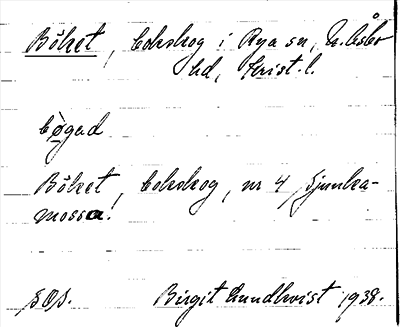 Böket, bokskog i Rya sn, N. Åsbo
hd, Krist. l.
bø̀gad
Böket, bokskog, nr 4 Ljunka-
mossa!
SOS. Birgit Lundkvist 1938.